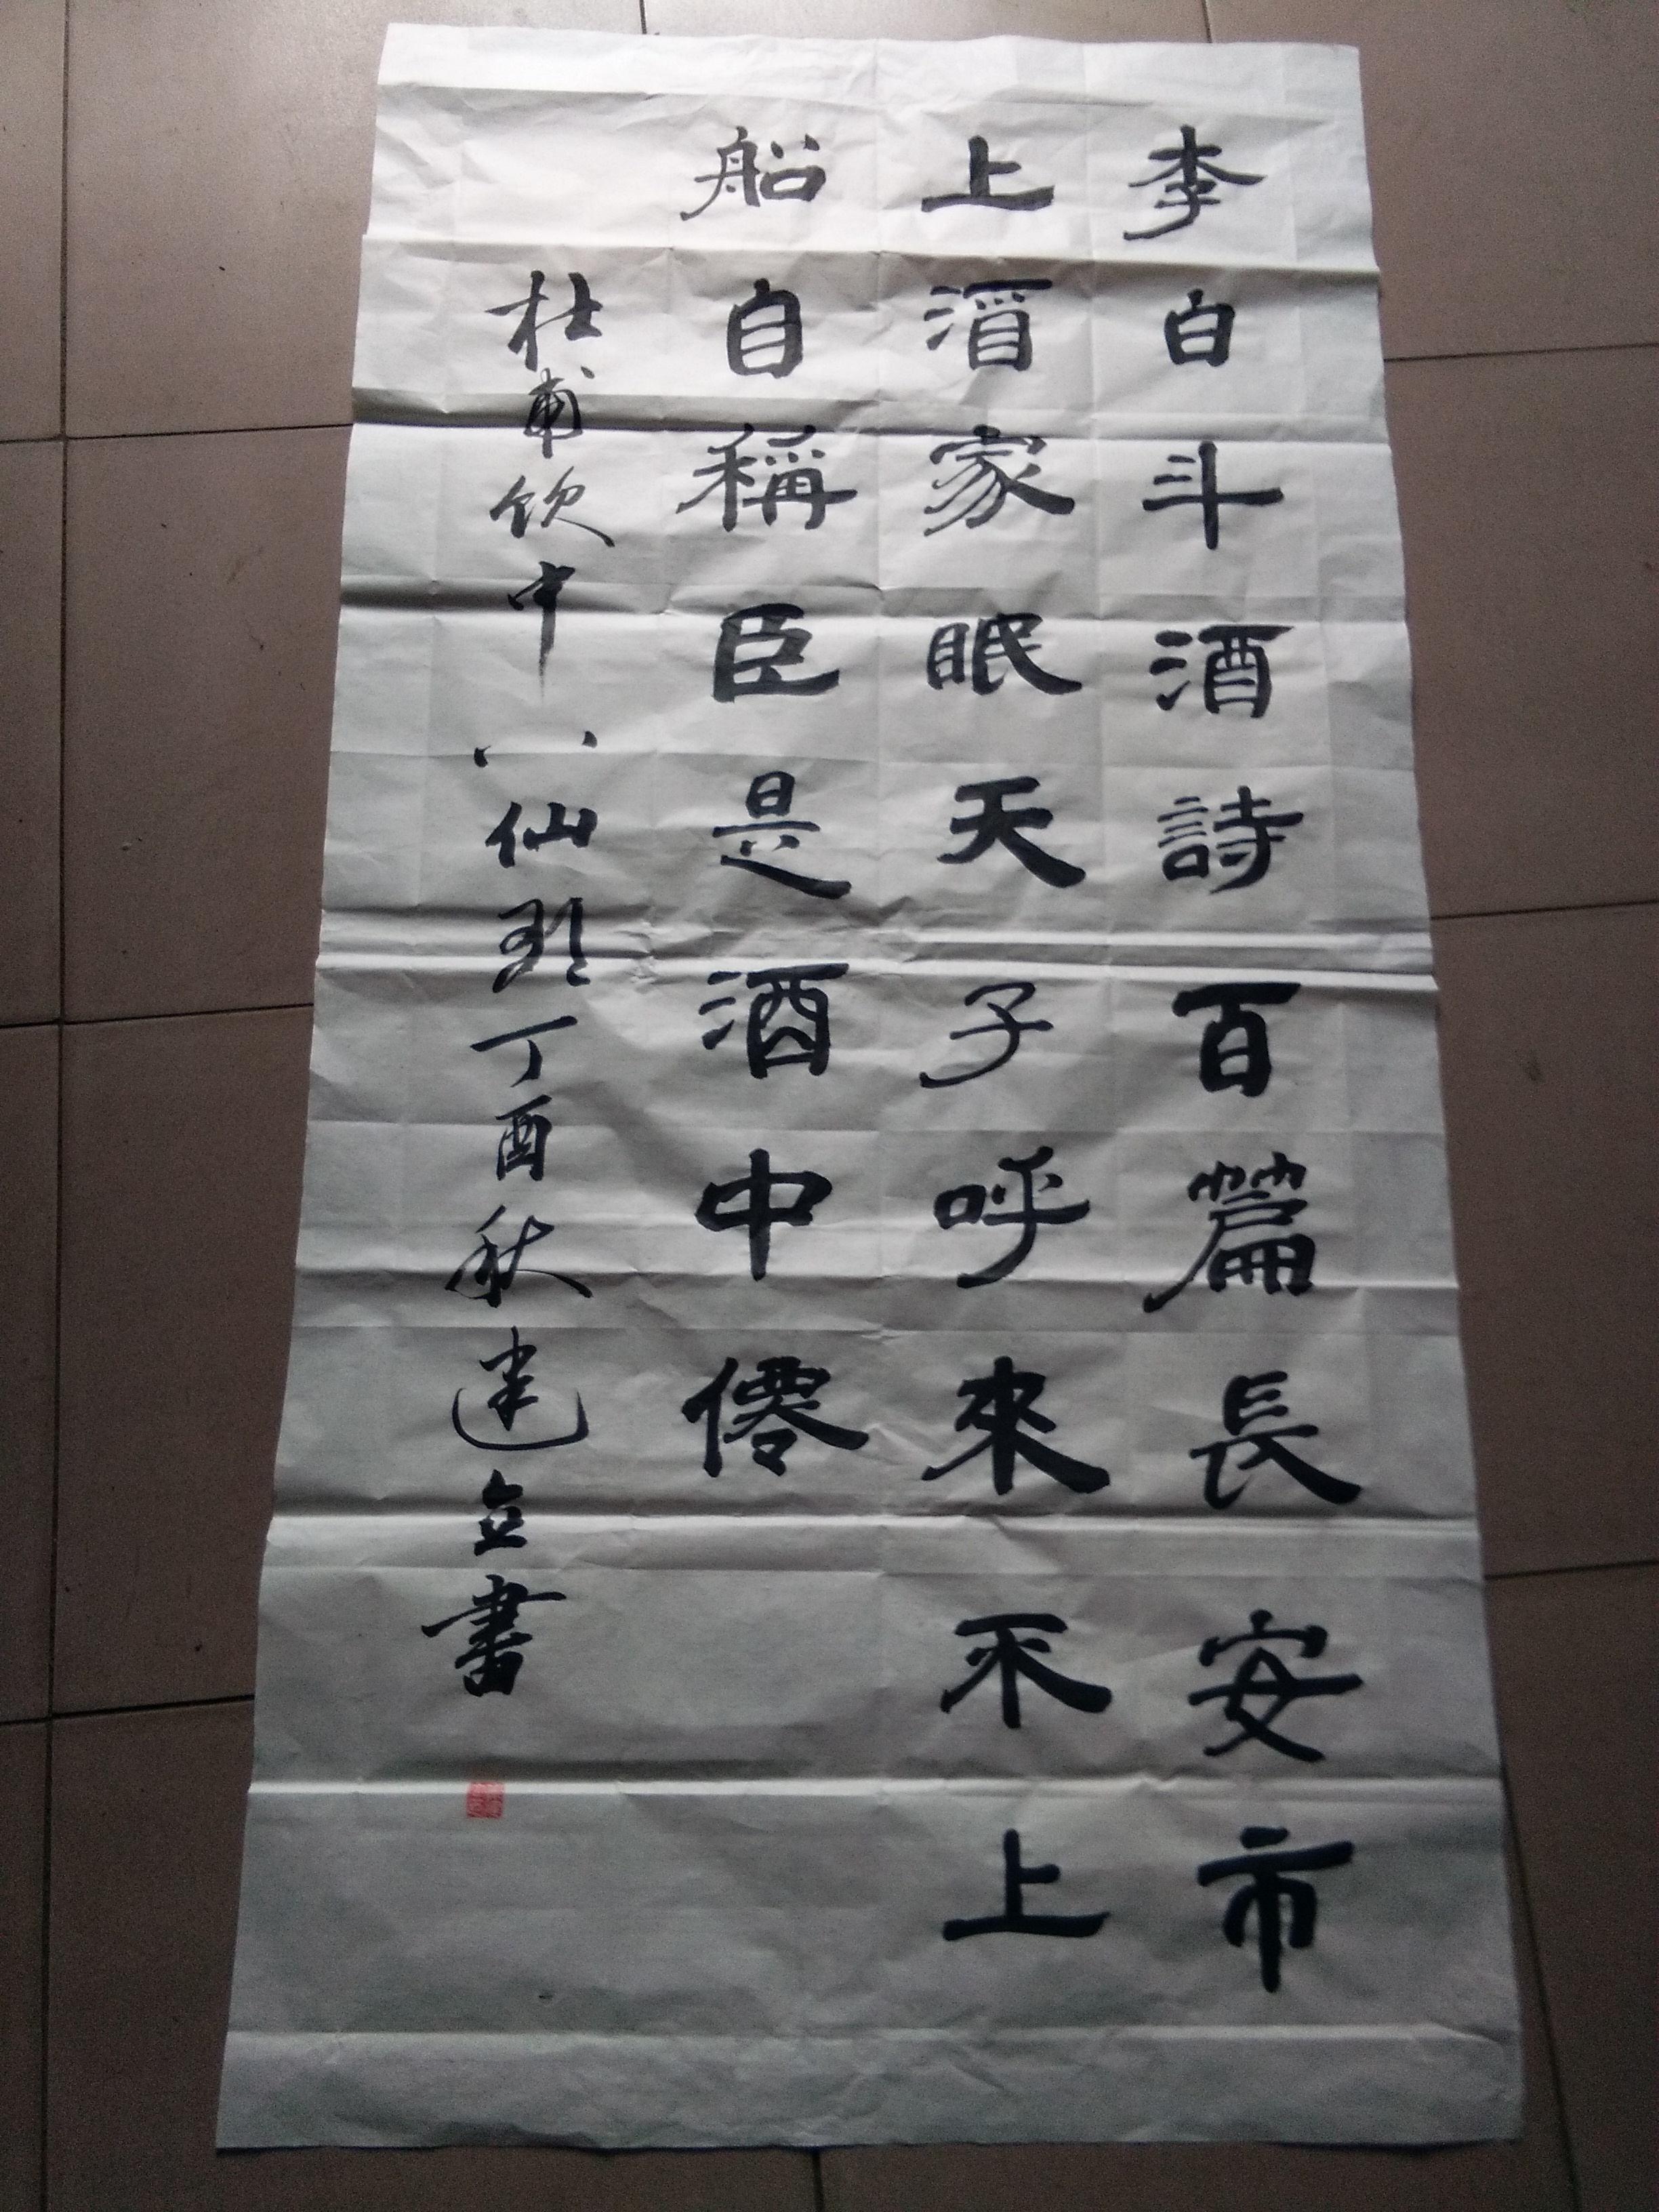 李白斗酒詩百篇長安市
上酒家眠天子呼來不上
船自稱臣是酒中僊
杜甫饮中八仙歌丁酉秋建立書